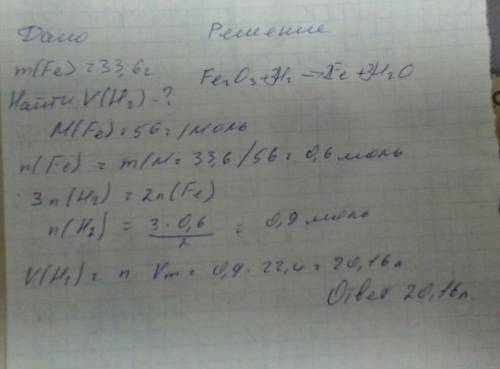 Дано Решение
m(Fe) = 33,6г
Fe2O3 + 3H2 → 2Fe + 3H2O
Найти V(H2) - ?
M(Fe) = 56 г/моль
n(Fe) = m/M = 33,6/56 = 0,6 моль
3n(H2) = 2n(Fe)
n(H2) = 3·0,6/2 = 0,9 моль
V(H2) = n · Vm = 0,9 · 22,4 = 20,16 л
Ответ 20,16л.